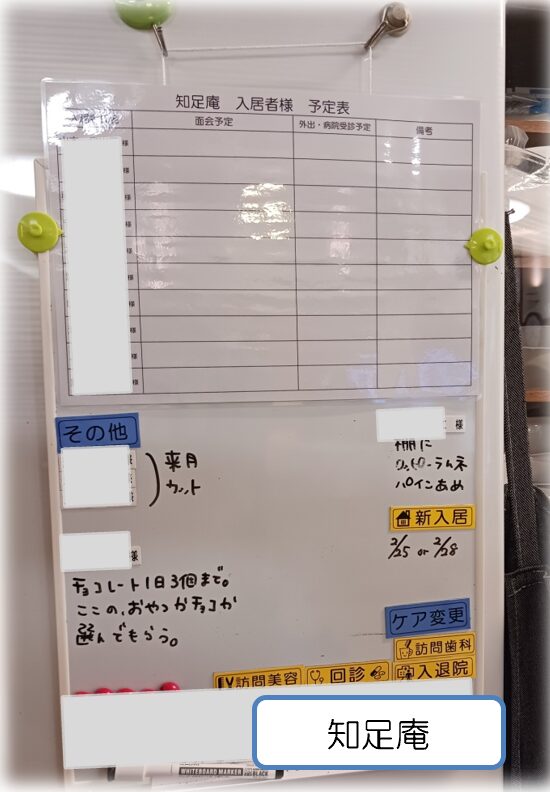 知足庵 入居者様 予定表
面会予定 外出・病院受診予定 備考
様
様
様
様
様
様
様
様
様
様
その他
様
来月
カット
様
チョコレート1日3個まで。
ここの、おやつかチョコか
選んでもらう。
様
棚に
ラムネ
パインあめ
新入居
2/25 or 2/28
ケア変更
訪問歯科
訪問美容 回診 入退院
WHITEBOARD MARKER BLACK
知足庵